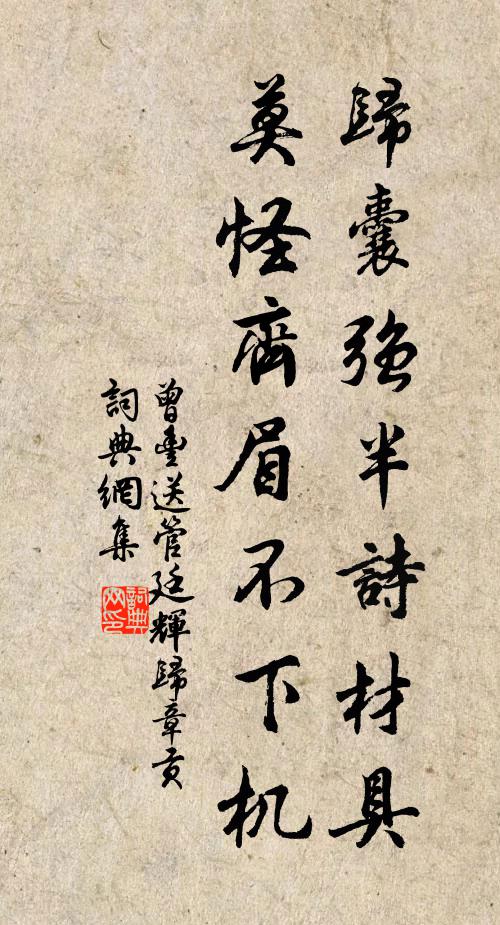 歸囊強半詩材具
莫怪齊眉不下机
曾豐送管廷輝歸章貢
詞典網集
詞典
网印